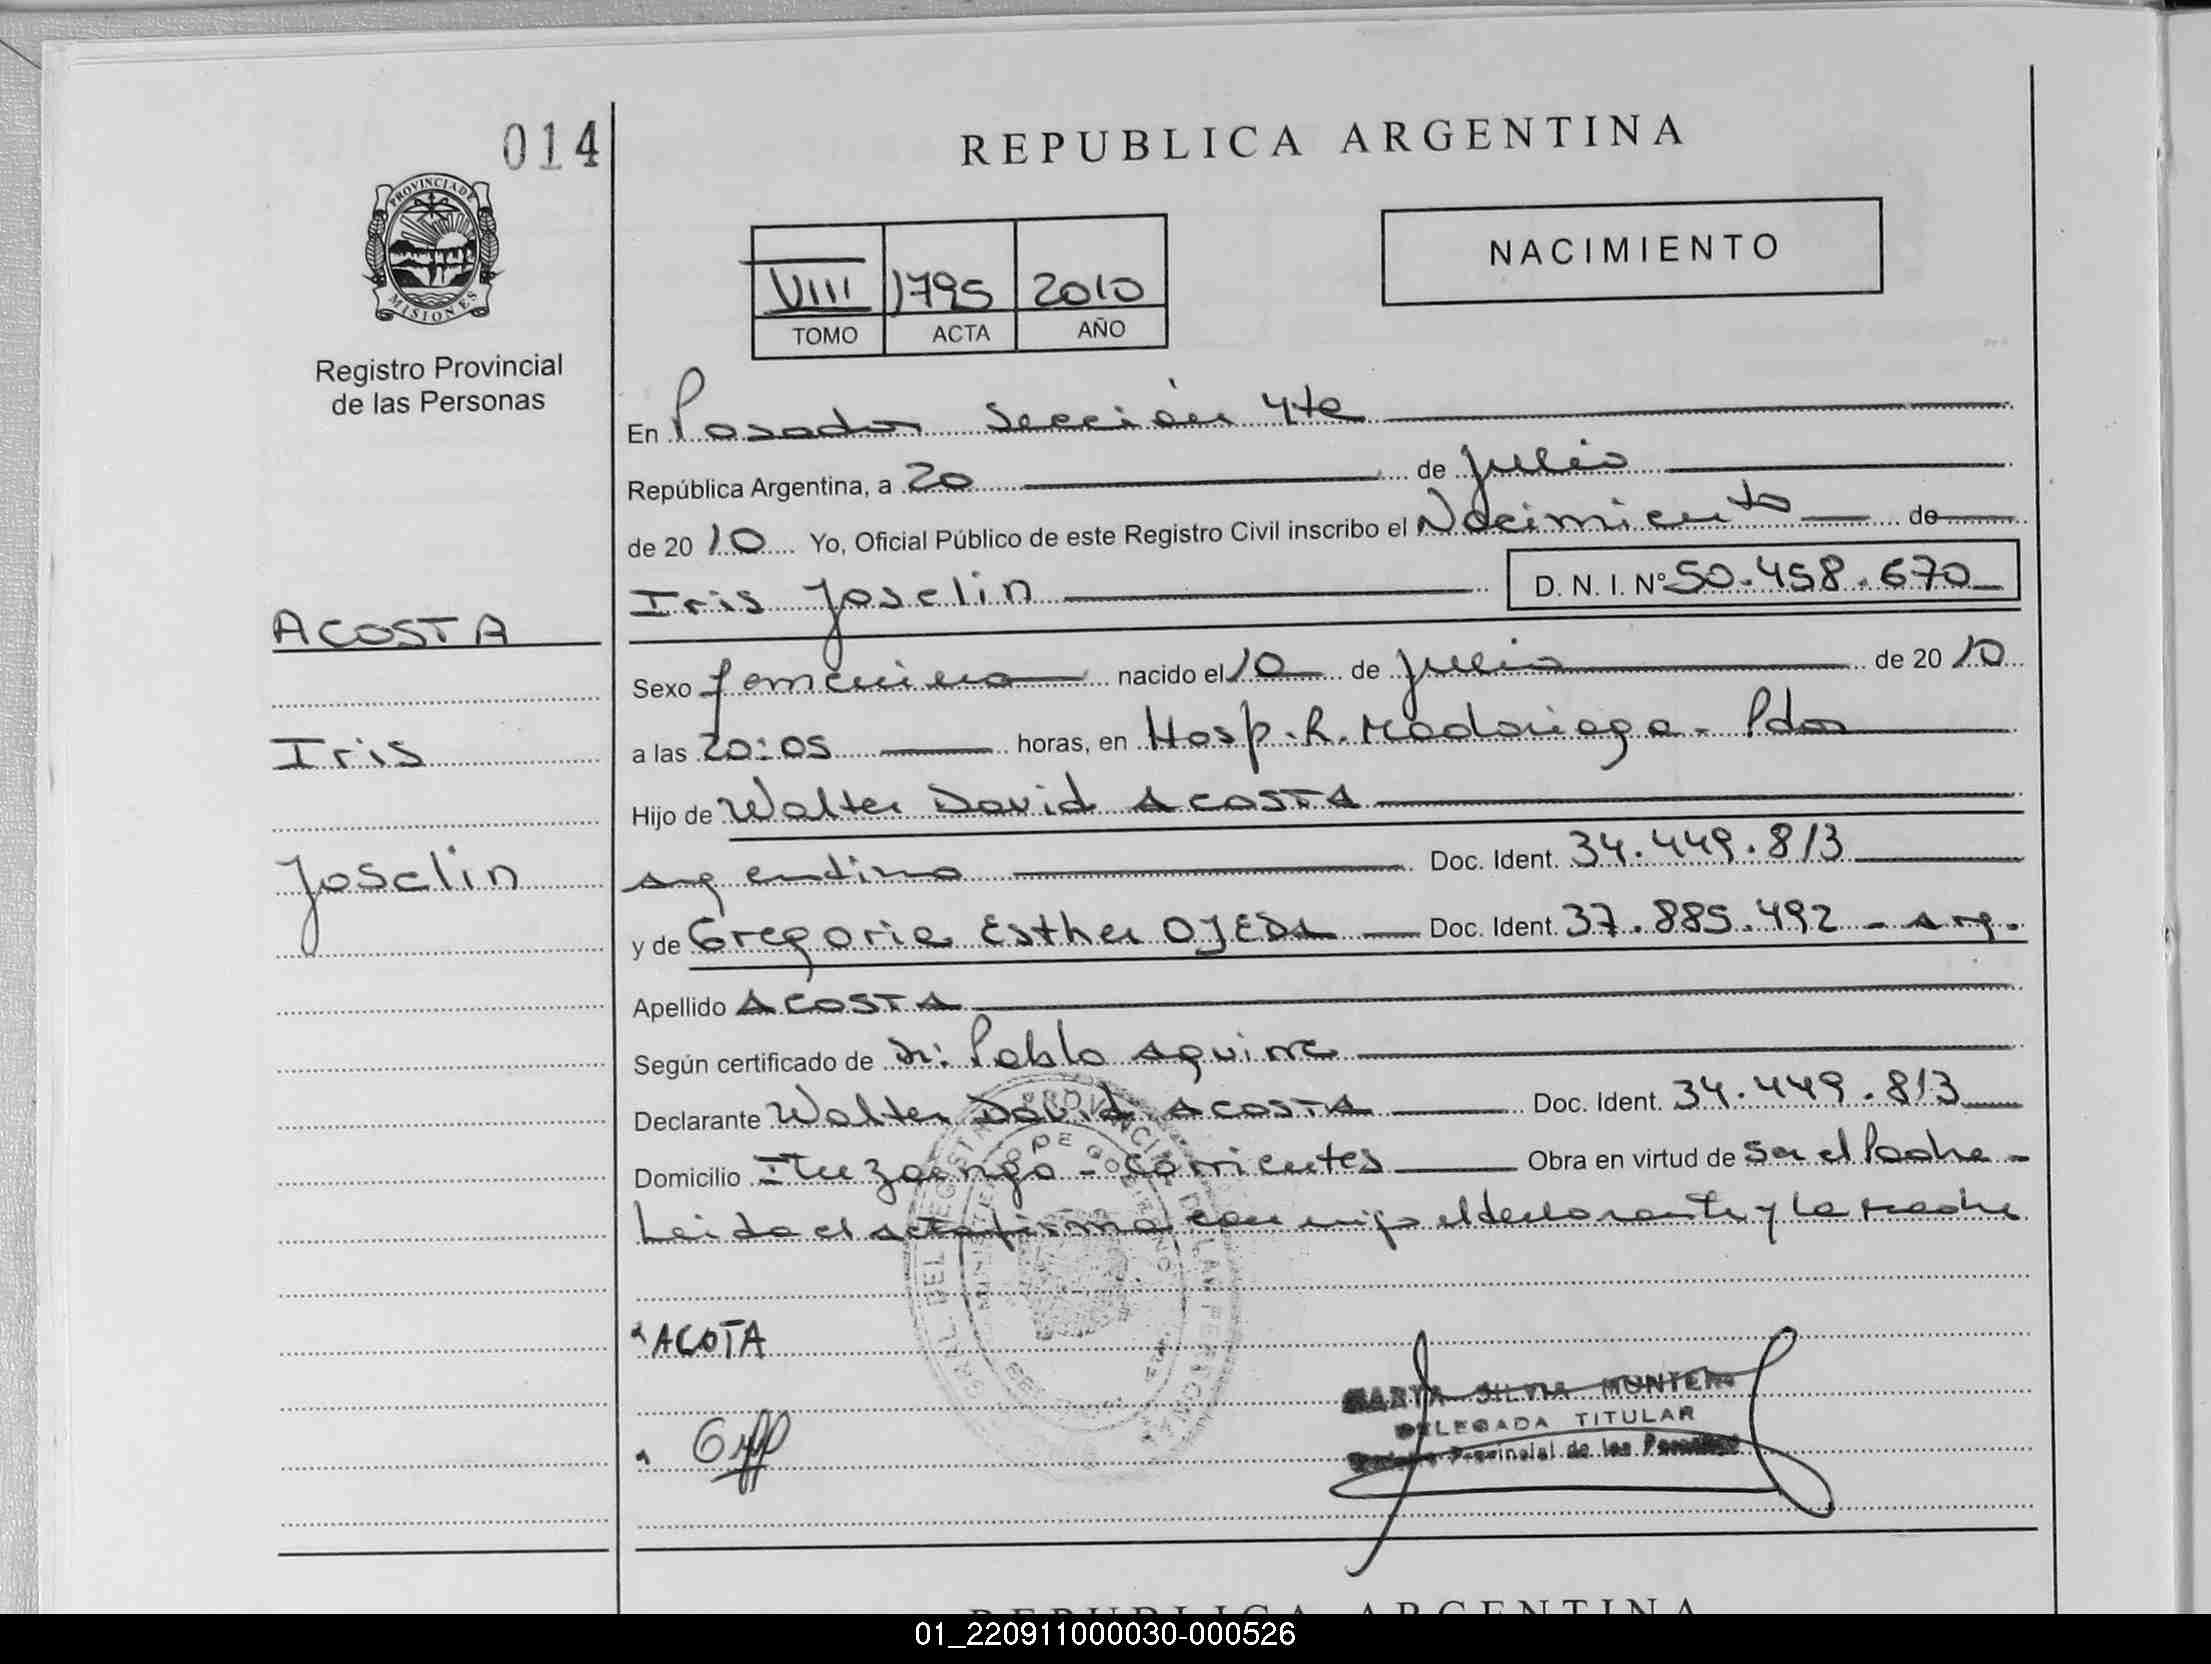 014
REPUBLICA ARGENTINA
PROVINCIA DE
MISIONES
Registro Provincial
de las Personas
NACIMIENTO
VIII 1795 2010
TOMO ACTA AÑO
En Posadas Sección 4ta
República Argentina, a 20 de julio
de 2010 Yo, Oficial Público de este Registro Civil inscribo el Nacimiento de
Iris Joselin D. N. I. N° 50.458.670
ACOSTA
Iris
Joselin
Sexo femenino nacido el 10 de julio de 2010
a las 20:05 horas, en Hosp. R. Madariaga - Pdas
Hijo de Walter David ACOSTA
argentino Doc. Ident. 34.449.813
y de Gregoria Esther OJEDA Doc. Ident. 37.885.492 - arg.
Apellido ACOSTA
Según certificado de Dr: Pablo Aguirre
Declarante Walter David ACOSTA Doc. Ident. 34.449.813
Domicilio Ituzaingo - Corrientes Obra en virtud de Ser el Padre -
Leida el acta firma con migo el declarante y la madre
ACOTA
MARTA SILVIA MONTERO
DELEGADA TITULAR
Registro Provincial de las Personas
REPUBLICA ARGENTINA
01_220911000030-000526